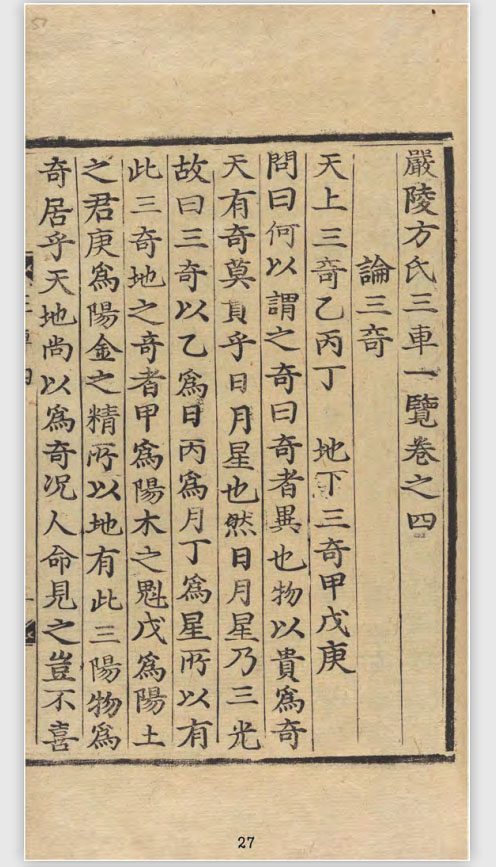 嚴陵方氏三車一覽卷之四
論三奇
天上三奇乙丙丁　地下三奇甲戊庚
問曰何以謂之奇曰奇者異也物以貴爲奇
天有奇莫貴乎日月星也然日月星乃三光
故曰三奇以乙爲日丙爲月丁爲星所以有
此三奇地之奇者甲爲陽木之魁戊爲陽土
之君庚爲陽金之精所以地有此三陽物爲
奇居乎天地尚以爲奇况人命見之豈不喜
27